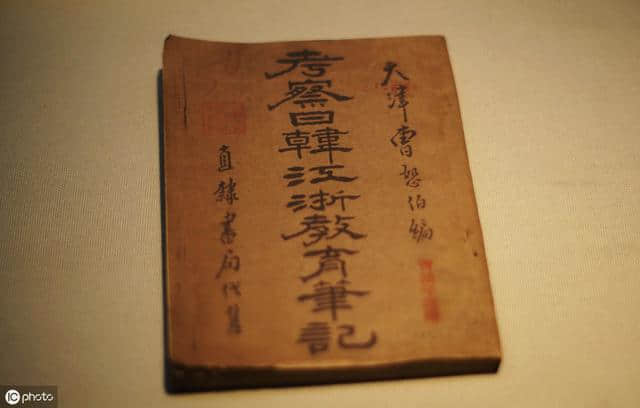 天津曹恕伯編
考察日韓江浙教育筆記
直隸書局代售
iC photo